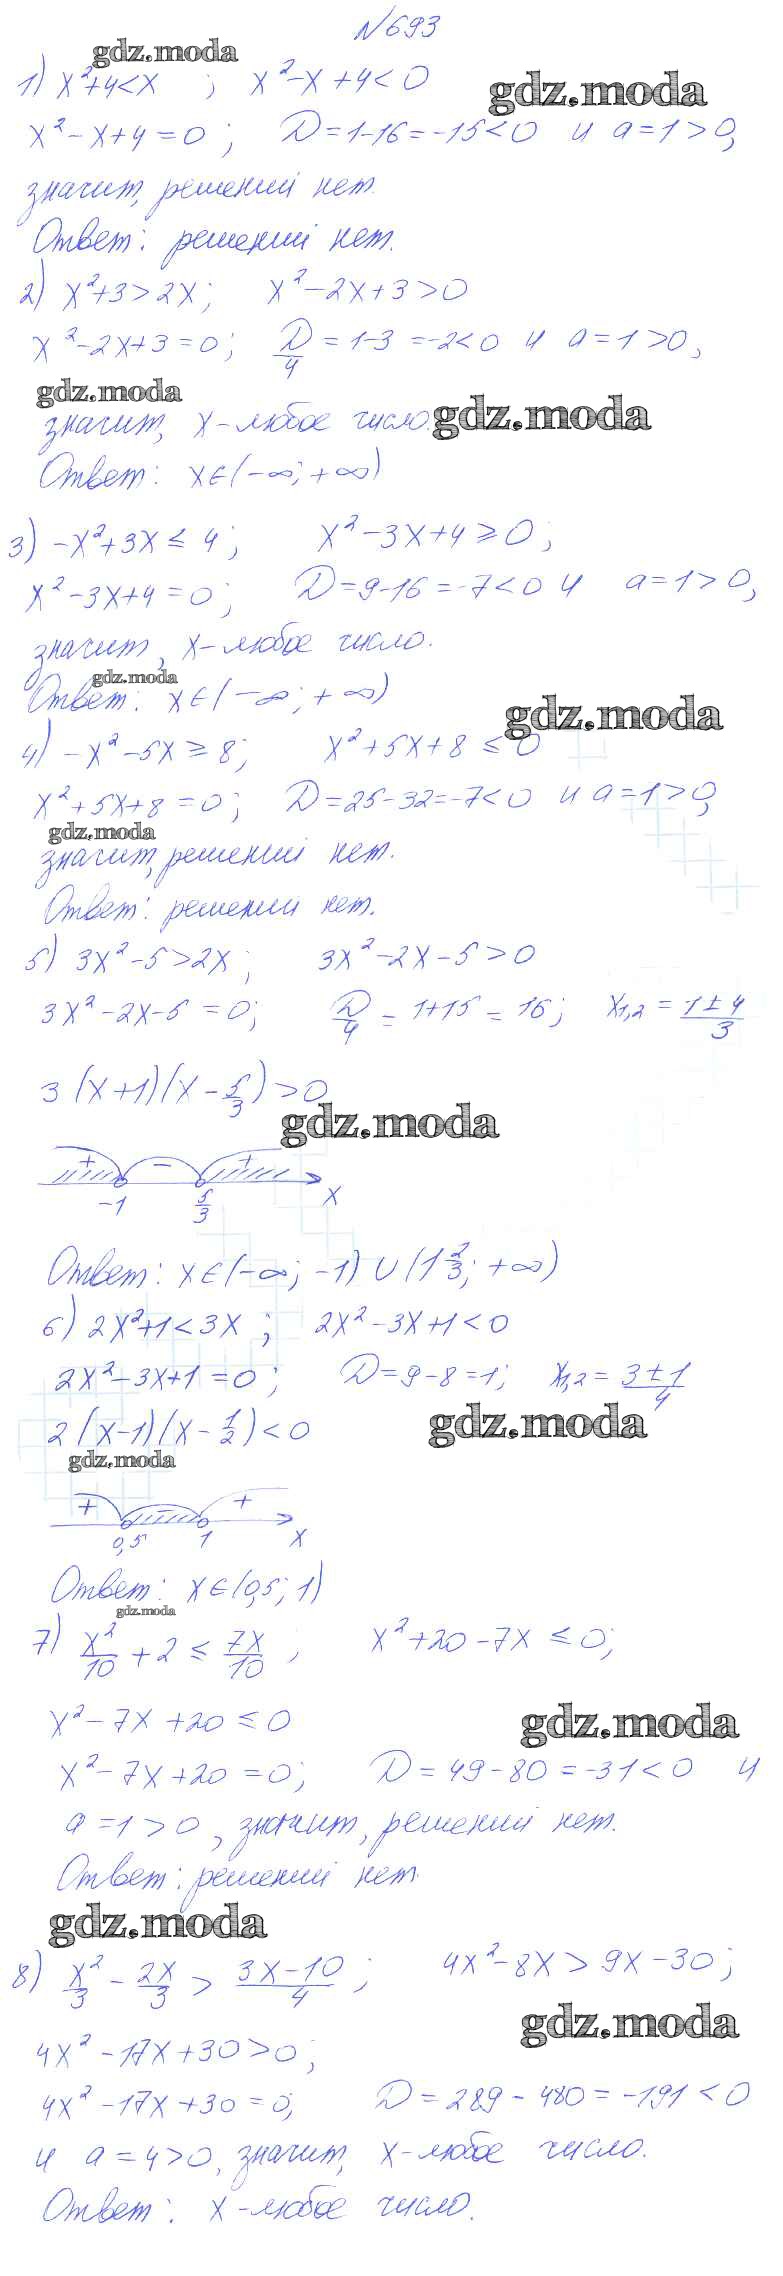 №693
gdz.moda
1) x²+4<x ; x²-x+4<0
gdz.moda
x²-x+4=0; D=1-16=-15<0 и a=1>0,
значит, решений нет.
Ответ: решений нет.
2) x²+3>2x; x²-2x+3>0
x²-2x+3=0; D/4=1-3=-2<0 и a=1>0,
gdz.moda
значит, x-любое число.
gdz.moda
Ответ: x∈(-∞;+∞)
3) -x²+3x≤4; x²-3x+4≥0;
x²-3x+4=0; D=9-16=-7<0 и a=1>0,
значит, x-любое число.
gdz.moda
Ответ: x∈(-∞;+∞)
gdz.moda
4) -x²-5x≥8; x²+5x+8≤0
x²+5x+8=0; D=25-32=-7<0 и a=1>0,
gdz.moda
значит, решений нет.
Ответ: решений нет.
5) 3x²-5>2x; 3x²-2x-5>0
3x²-2x-5=0; D/4=1+15=16; x1,2=(1±4)/3
3(x+1)(x-5/3)>0
gdz.moda
+ - +
-1 5/3 x
Ответ: x∈(-∞;-1)∪(1 2/3;+∞)
6) 2x²+1<3x ; 2x²-3x+1<0
2x²-3x+1=0; D=9-8=1; x1,2=(3±1)/4
2(x-1)(x-1/2)<0
gdz.moda
gdz.moda
+ - +
0,5 1 x
Ответ: x∈(0,5;1)
gdz.moda
7) x²/10+2≤7x/10 ; x²+20-7x≤0;
x²-7x+20≤0
gdz.moda
x²-7x+20=0; D=49-80=-31<0 и
a=1>0, значит, решений нет.
Ответ: решений нет.
gdz.moda
8) x²/3-2x/3>(3x-10)/4 ; 4x²-8x>9x-30;
gdz.moda
4x²-17x+30>0;
4x²-17x+30=0; D=289-480=-191<0
и a=4>0, значит, x-любое число.
Ответ: x-любое число.